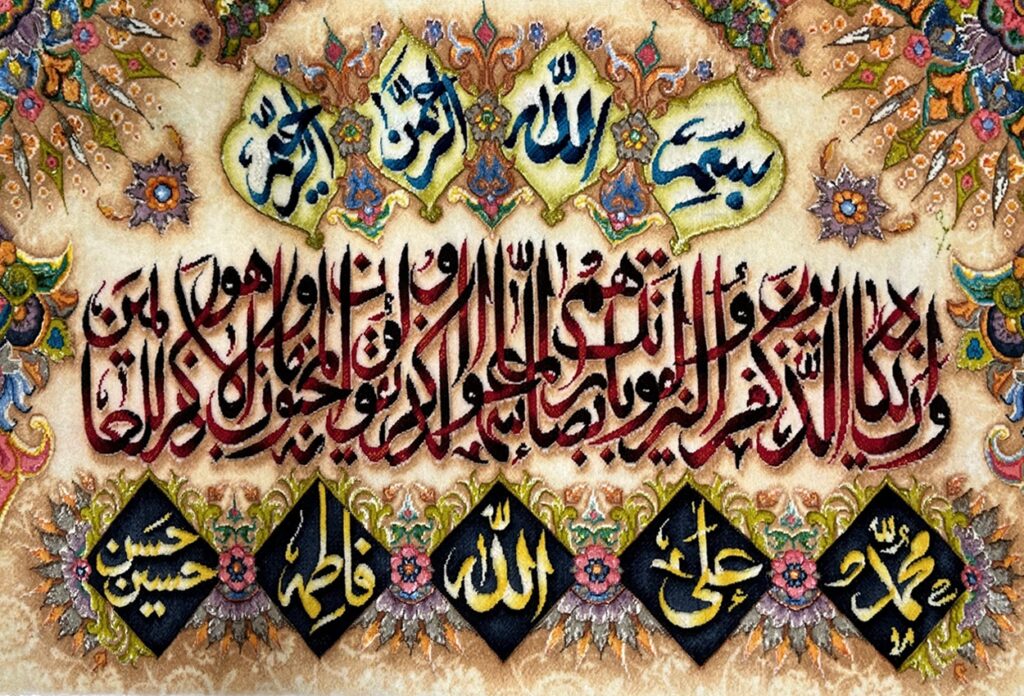 بسم الله الرحمن الرحيم
وإن يكاد الذين كفروا ليزلقونك بأبصارهم لما سمعوا الذكر ويقولون إنه لمجنون وما هو إلا ذكر للعالمين
محمد علي الله فاطمه حسن حسين